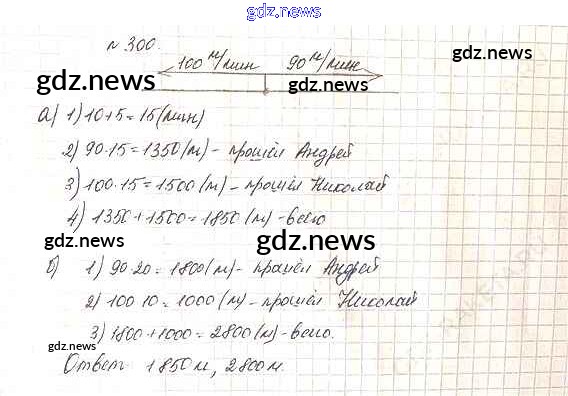 gdz.news
№ 300.
100 м/мин 90 м/мин
gdz.news gdz.news
а) 1) 10+5=15 (мин)
2) 90·15=1350 (м) - прошёл Андрей
3) 100·15=1500 (м) - прошёл Николай
4) 1350+1500=1850 (м) - всего
gdz.news gdz.news
б) 1) 90·20=1800 (м) - прошёл Андрей
2) 100·10=1000 (м) - прошёл Николай
3) 1800+1000=2800 (м) - всего.
gdz.news gdz.news
Ответ 1850 м, 2800 м.